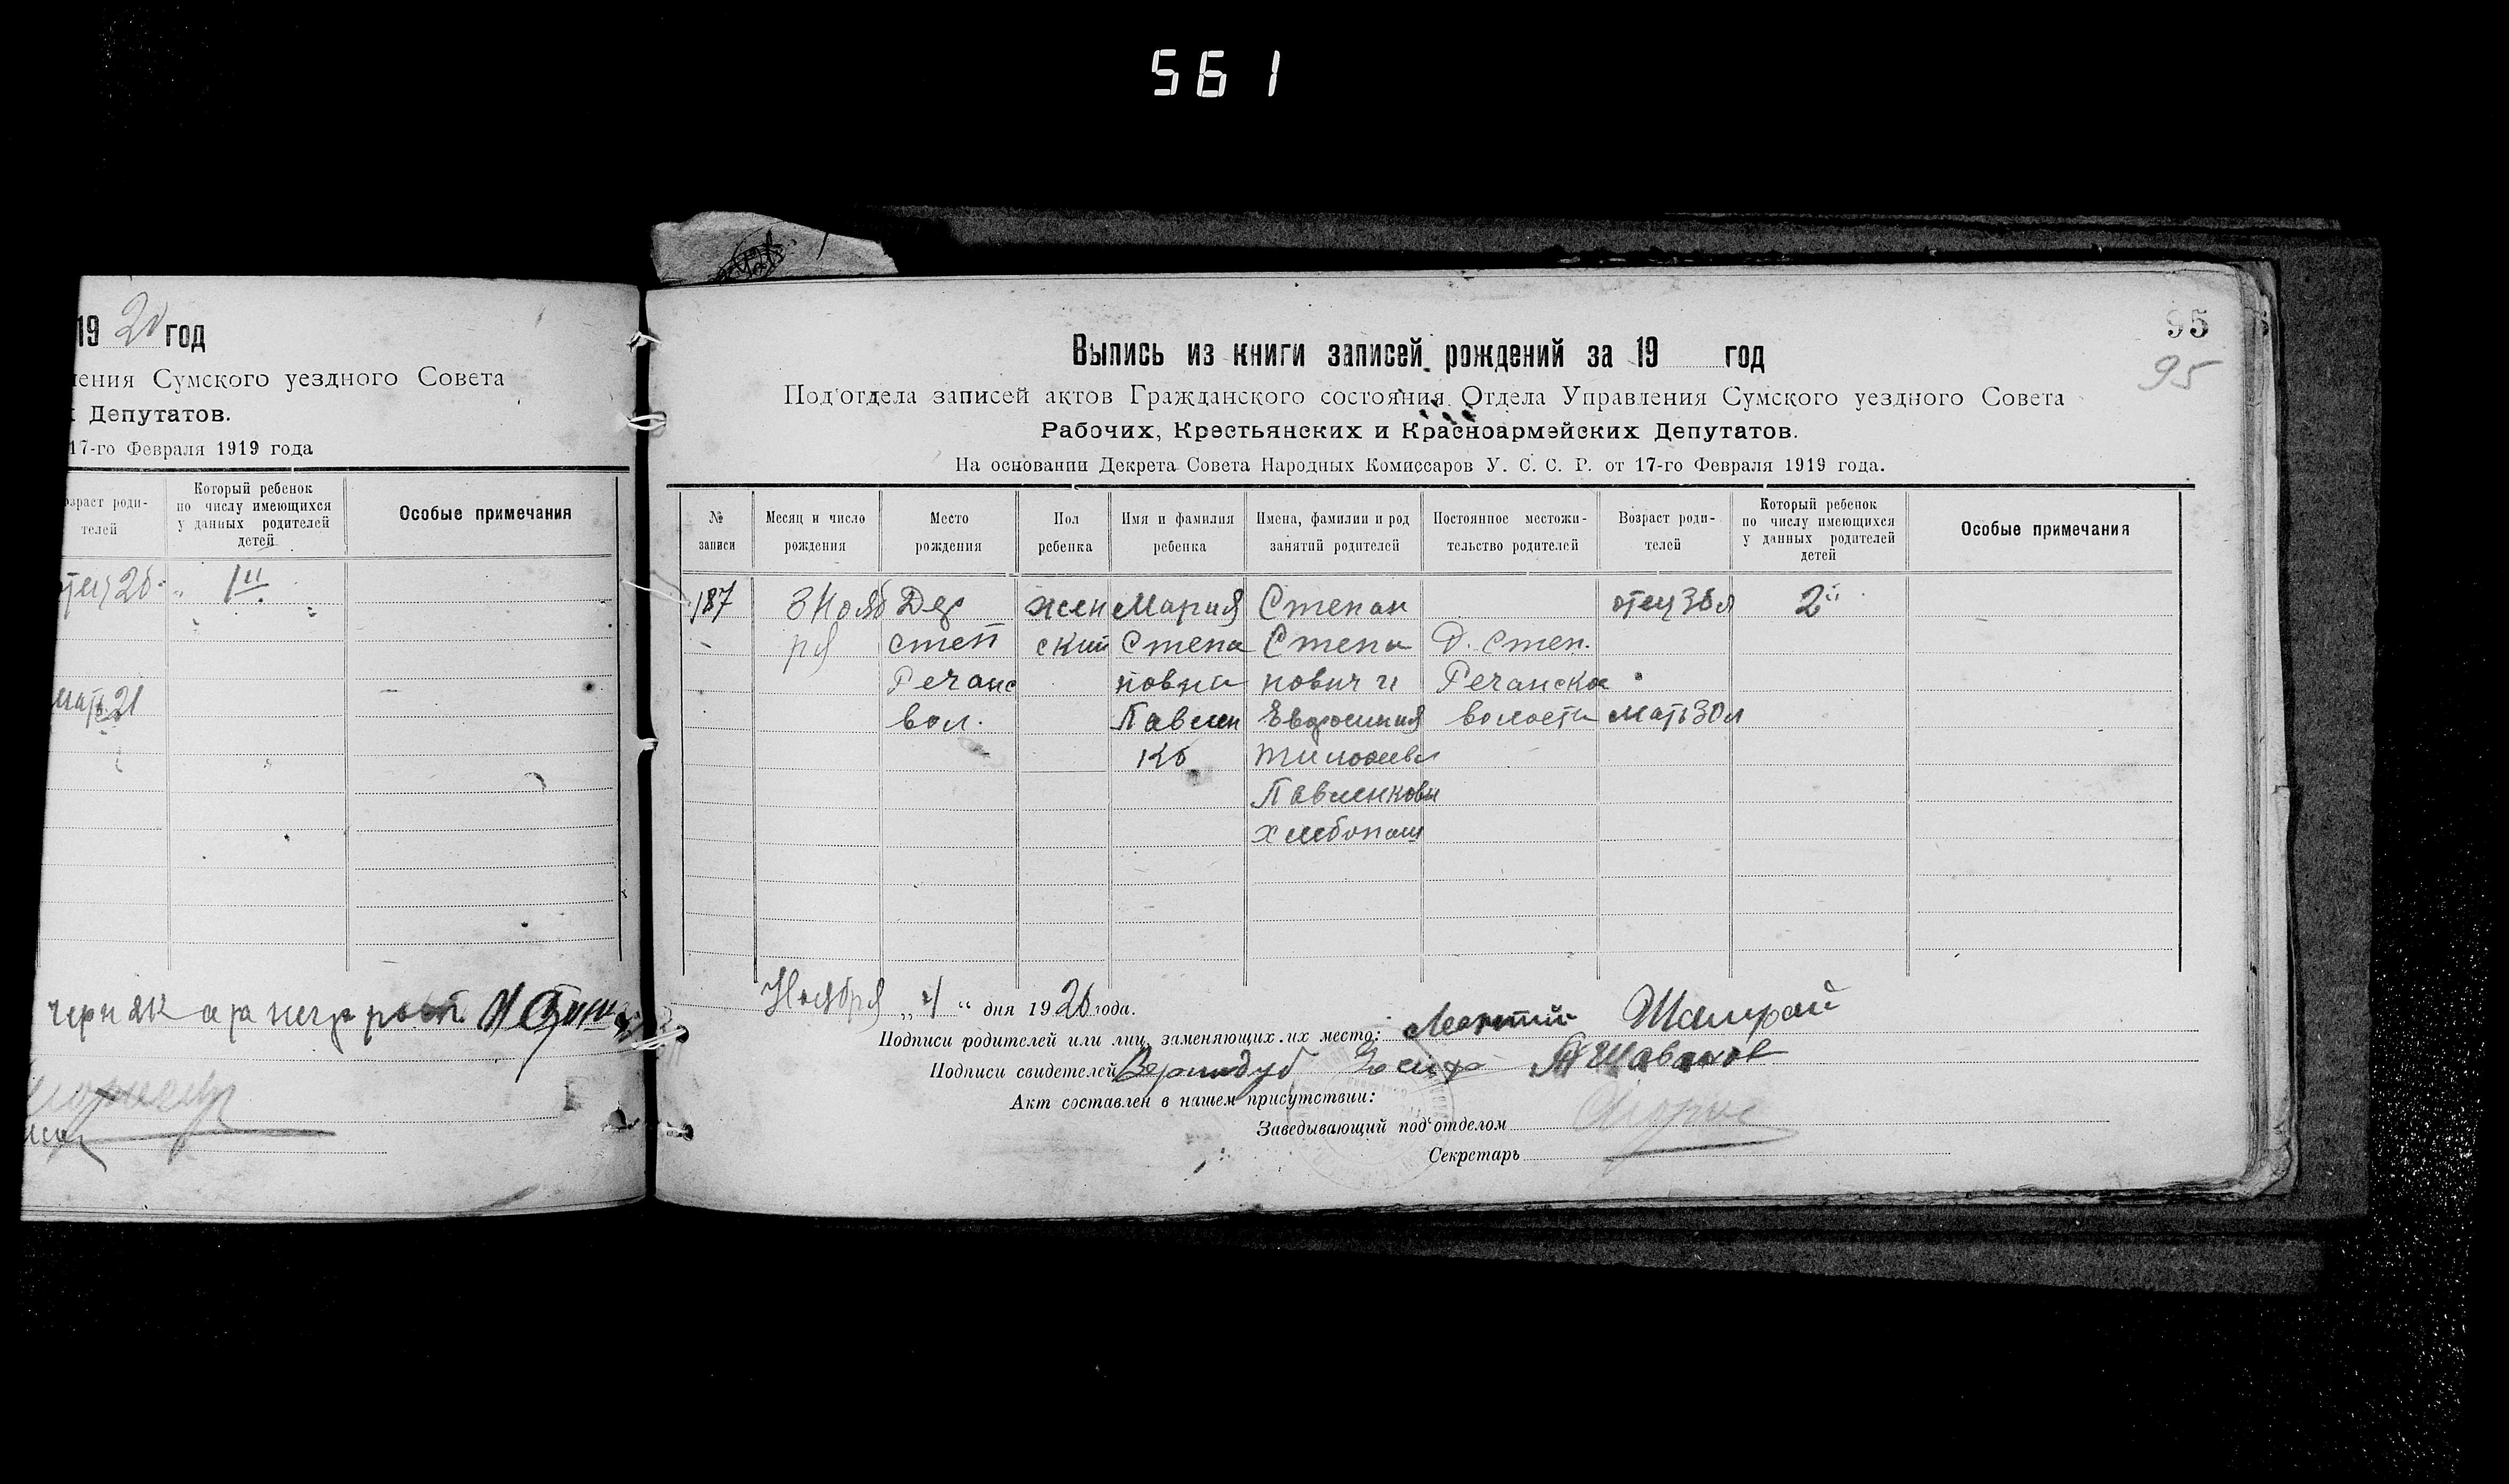 561
19 20 год
ения Сумского уездного Совета
Депутатов.
17-го Февраля 1919 года
озраст роди-
телей
Который ребенок
по числу имеющихся
у данных родителей
детей
Особые примечания
1й
мать 21
95
95
Выпись из книги записей рождений за 19 год
Под'отдела записей актов Гражданского состояния Отдела Управления Сумского уездного Совета
Рабочих, Крестьянских и Красноармейских Депутатов.
На основании Декрета Совета Народных Комиссаров У. С. С. Р. от 17-го Февраля 1919 года.
№
записи
Месяц и число
рождения
Место
рождения
Пол
ребенка
Имя и фамилия
ребенка
Имена, фамилии и род
занятий родителей
Постоянное местожи-
тельство родителей
Возраст роди-
телей
Который ребенок
по числу имеющихся
у данных родителей
детей
Особые примечания
187
3 Нояб
ря
Дер
степ
Речанс
вол.
жен
ский
Мария
Степа
новна
Павлен
ко
Степан
Степа
нович и
Евдокия
Павленковы
хлебопаш
Д. Степ.
Речанской
волости
отец 36 л
мать 30 л
2й
Ноября „ 4 “ дня 1920 года.
Подписи родителей или лиц, заменяющих их место: Шамрай
Подписи свидетелей Вернидуб
Акт составлен в нашем присутствии:
Заведывающий под'отделом
Секретарь